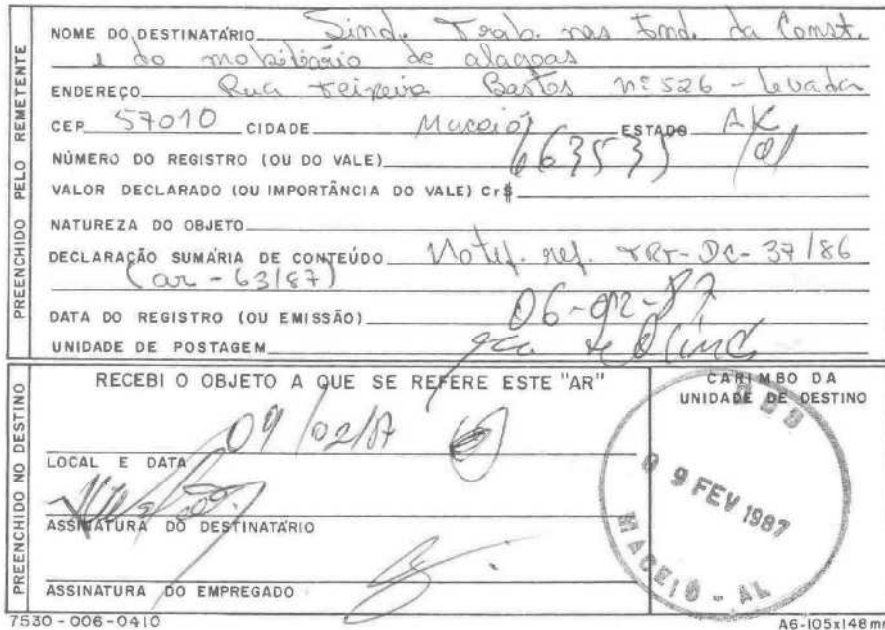 PREENCHIDO PELO REMETENTE
NOME DO DESTINATÁRIO Sind. Trab. nas Ind. da Const.
e do mobiliário de alagoas
ENDEREÇO Rua Teixeira Bastos nº 526 - Levada
CEP 57010 CIDADE Maceió ESTADO AL
NÚMERO DO REGISTRO (OU DO VALE) 663535
VALOR DECLARADO (OU IMPORTÂNCIA DO VALE) Cr$
NATUREZA DO OBJETO
DECLARAÇÃO SUMÁRIA DE CONTEÚDO Notif. ref. TRT-DC-37/86
(ar - 63/87)
DATA DO REGISTRO (OU EMISSÃO) 06-02-87
UNIDADE DE POSTAGEM
PREENCHIDO NO DESTINO
RECEBI O OBJETO A QUE SE REFERE ESTE "AR"
CARIMBO DA
UNIDADE DE DESTINO
09/02/87
LOCAL E DATA
09 FEV 1987
MACEIÓ - AL
ASSINATURA DO DESTINATÁRIO
ASSINATURA DO EMPREGADO
7530-006-0410
A6-105x148mm